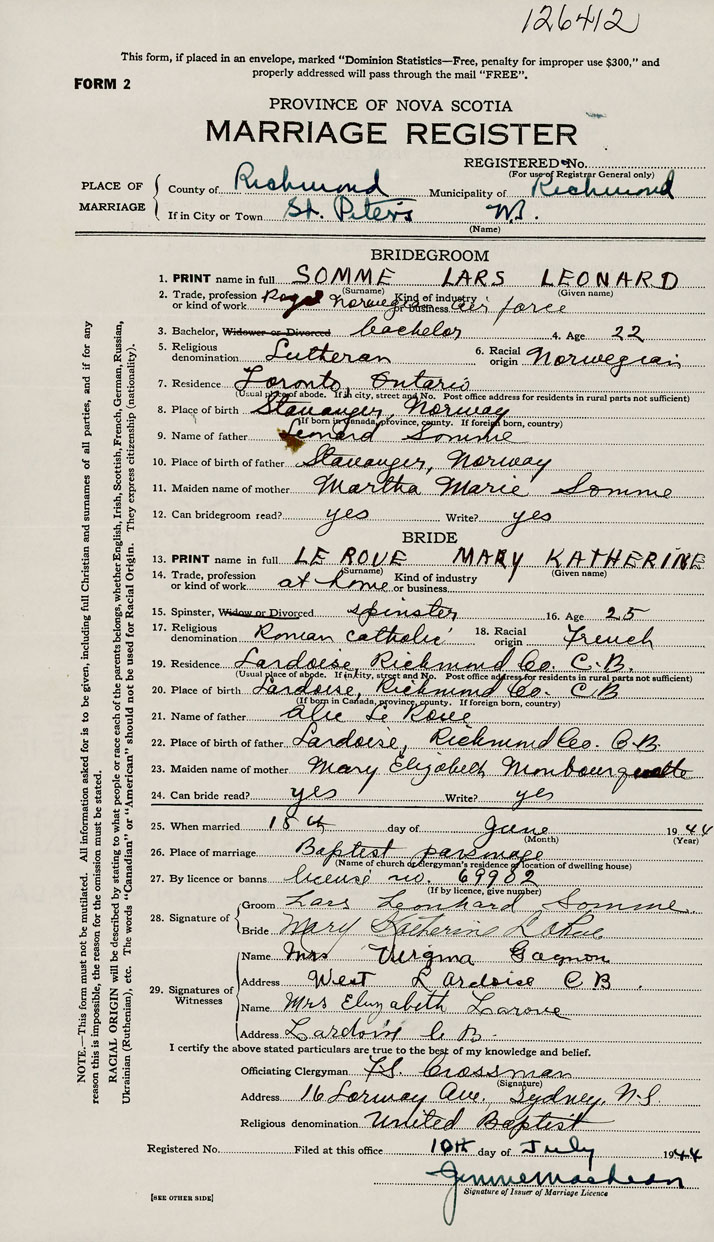 126412
This form, if placed in an envelope, marked “Dominion Statistics—Free, penalty for improper use $300,” and
properly addressed will pass through the mail “FREE”.
FORM 2
PROVINCE OF NOVA SCOTIA
MARRIAGE REGISTER
REGISTERED No.
(For use of Registrar General only)
PLACE OF MARRIAGE
County of Richmond Municipality of Richmond
If in City or Town St. Peter's
(Name)
BRIDEGROOM
1. PRINT name in full SOMME LARS LEONARD
(Surname) (Given name)
2. Trade, profession or kind of work Royal Norwegian Kind of industry or business air force
3. Bachelor, Widower or Divorced bachelor 4. Age 22
5. Religious denomination Lutheran 6. Racial origin Norwegian
7. Residence Toronto, Ontario
(Usual place of abode. If in city, street and No. Post office address for residents in rural parts not sufficient)
8. Place of birth Stavanger, Norway
(If born in Canada, province, county. If foreign born, country)
9. Name of father Leonard Somme
10. Place of birth of father Stavanger, Norway
11. Maiden name of mother Martha Marie Somme
12. Can bridegroom read? yes Write? yes
BRIDE
13. PRINT name in full LE ROUE MARY KATHERINE
(Surname) (Given name)
14. Trade, profession or kind of work at home Kind of industry or business
15. Spinster, Widow or Divorced spinster 16. Age 25
17. Religious denomination Roman Catholic 18. Racial origin French
19. Residence Lardoise, Richmond Co. C.B.
(Usual place of abode. If in city, street and No. Post office address for residents in rural parts not sufficient)
20. Place of birth Lardoise, Richmond Co. C.B
(If born in Canada, province, county. If foreign born, country)
21. Name of father Le Roue
22. Place of birth of father Lardoise, Richmond Co. C.B.
23. Maiden name of mother Mary Elizabeth Monbourquette
24. Can bride read? yes Write? yes
25. When married 18th day of June 1944
(Month) (Year)
26. Place of marriage Baptist parsonage
(Name of church or clergyman's residence or location of dwelling house)
27. By licence or banns license no. 69982
(If by licence, give number)
28. Signature of
Groom Lars Leonhard Somme
Bride Mary Katherine LaRue
29. Signatures of Witnesses
Name Mrs Virgina Gagnon
Address West L Ardoise C B.
Name Mrs Elizabeth Larove
Address Lardois C B.
I certify the above stated particulars are true to the best of my knowledge and belief.
Officiating Clergyman F.S. Crossman
(Signature)
Address 16 Lorway Ave., Sydney, N.S.
Religious denomination United Baptist
Registered No. Filed at this office 10th day of July 1944
Signature of Issuer of Marriage Licence
[SEE OTHER SIDE]
NOTE.—This form must not be mutilated. All information asked for is to be given, including full Christian and surnames of all parties, and if for any
reason this is impossible, the reason for the omission must be stated.
RACIAL ORIGIN will be described by stating to what people or race each of the parents belongs, whether English, Irish, Scottish, French, German, Russian,
Ukrainian (Ruthenian), etc. The words “Canadian” or “American” should not be used for Racial Origin. They express citizenship (nationality).